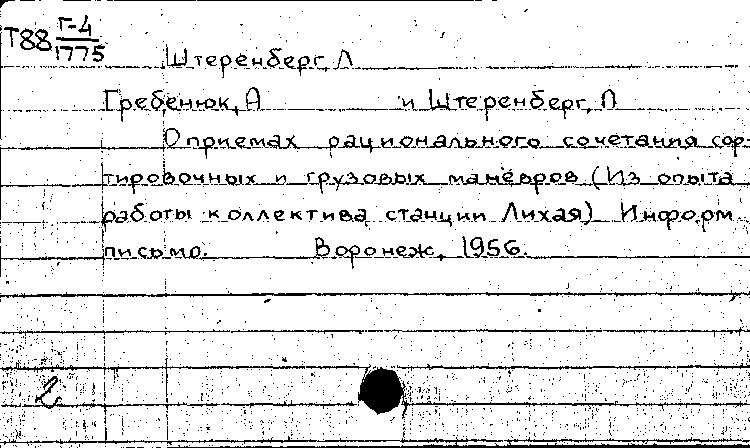 Т88 Г-4
1775
Штеренберг, Л
Гребенюк, А и Штеренберг, Л
О приемах рационального сочетания сор-
тировочных и грузовых маневров (Из опыта
работы коллектива станции Лихая) Информ
письмо. Воронеж, 1956.